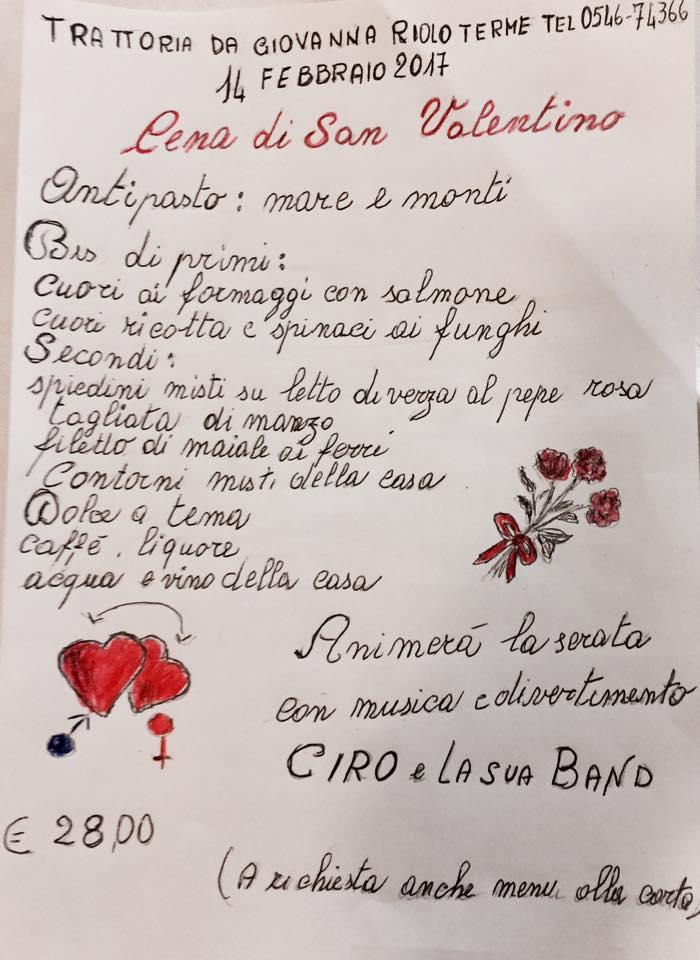 TRATTORIA DA GIOVANNA RIOLO TERME TEL 0546-74366
14 FEBBRAIO 2017
Cena di San Valentino
Antipasto: mare e monti
Bis di primi:
Cuori ai formaggi con salmone
Cuori ricotta e spinaci ai funghi
Secondi:
spiedini misti su letto di verza al pepe rosa
tagliata di manzo
filetto di maiale ai ferri
Contorni misti della casa
Dolce a tema
caffé, liquore
acqua e vino della casa
Animerá la serata
con musica e divertimento
CIRO e LA SUA BAND
€ 28,00
(A richiesta anche menu alla carta)